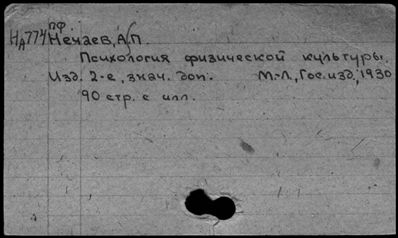 ПФ
НА774 Нечаев, А.П.
Психология физической культуры.
Изд. 2-е, знач. доп. М.-Л., Гос. изд., 1930
90 стр. с илл.